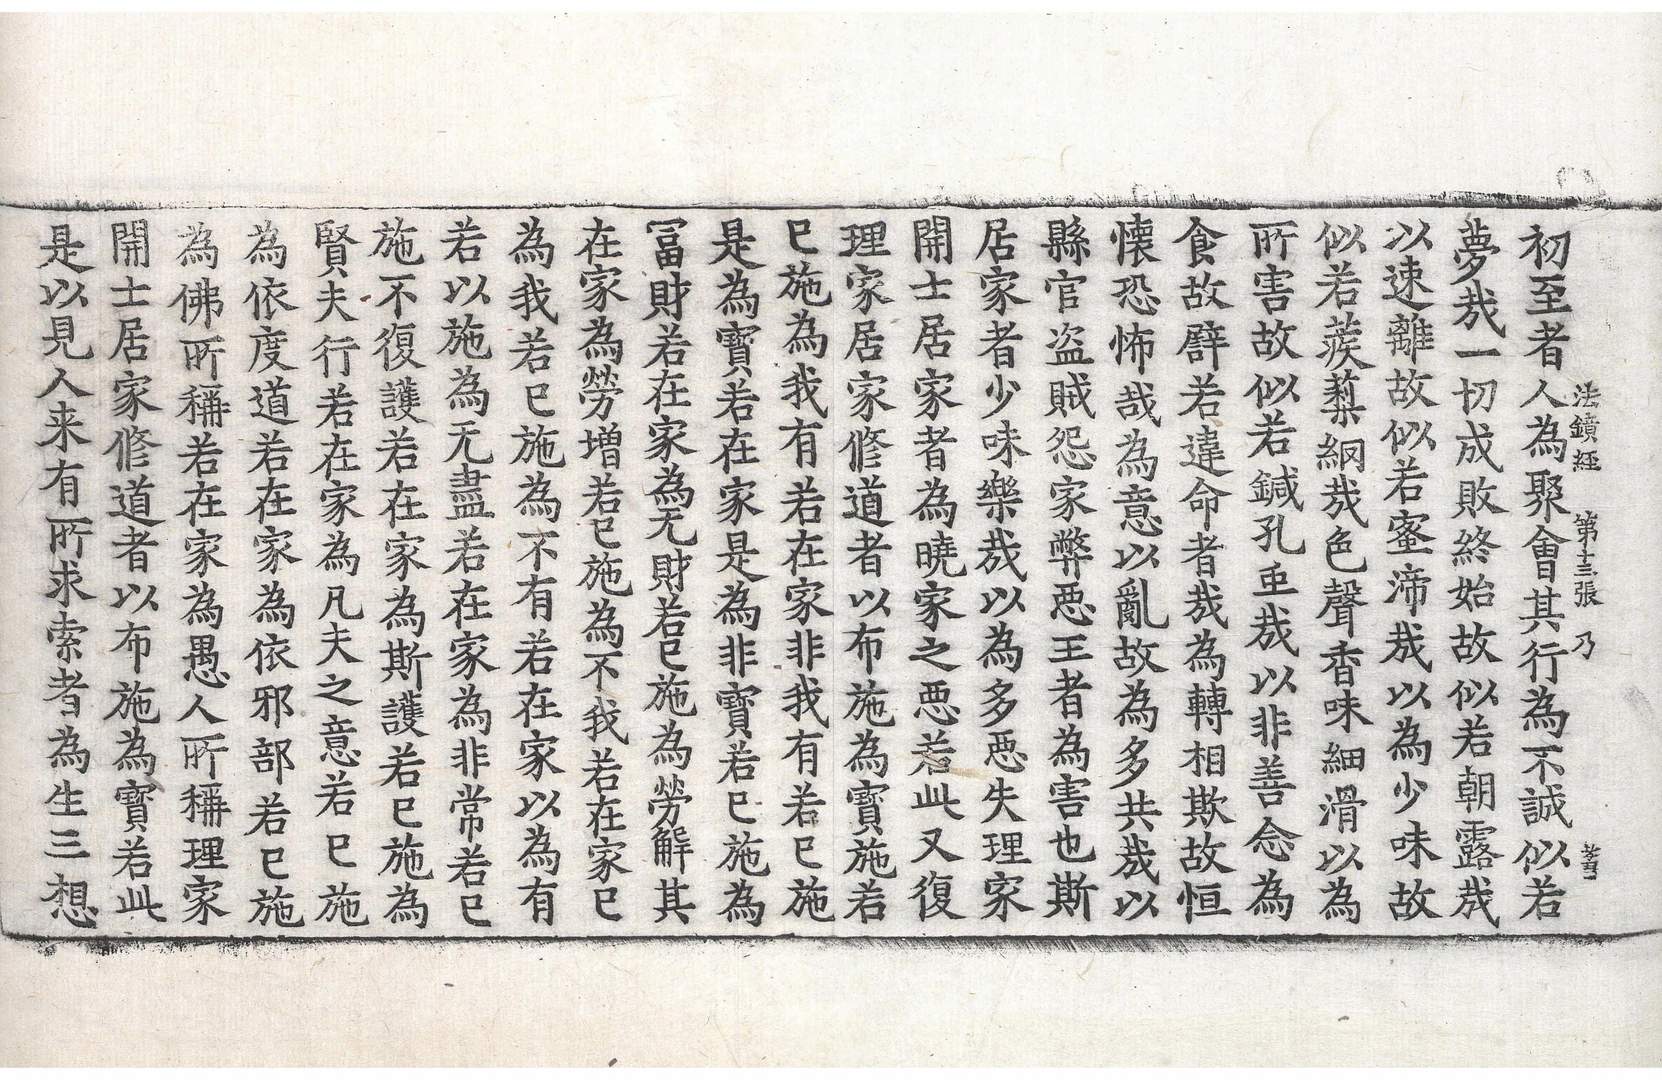 法鏡経 第十三張 乃
初至者人為聚會其行為不誠似若
夢㢤一切成敗終始故似若朝露㢤
以速離故似若蜜渧㢤以為少味故
似若蒺蔾網㢤色聲香味細滑以為
所害故似若鍼孔虫㢤以非善念為
食故辟若違命者㢤為轉相欺故恒
懷恐怖哉為意以亂故為多共㢤以
縣官盗賊怨家弊惡王者為害也斯
居家者少味樂㢤以為多惡失理家
開士居家者為曉家之惡若此又復
理家居家修道者以布施為寶施若
已施為我有若在家非我有若已施
是為寶若在家是為非寶若已施為
冨財若在家為无財若已施為勞解其
在家為勞增若已施為不我若在家已
為我若已施為不有若在家以為有
若以施為无盡若在家為非常若已
施不復護若在家為斯護若已施為
賢夫行若在家為凡夫之意若已施
為依度道若在家為依邪部若已施
為佛所稱若在家為愚人所稱理家
開士居家修道者以布施為寶若此
是以見人来有所求索者為生三想